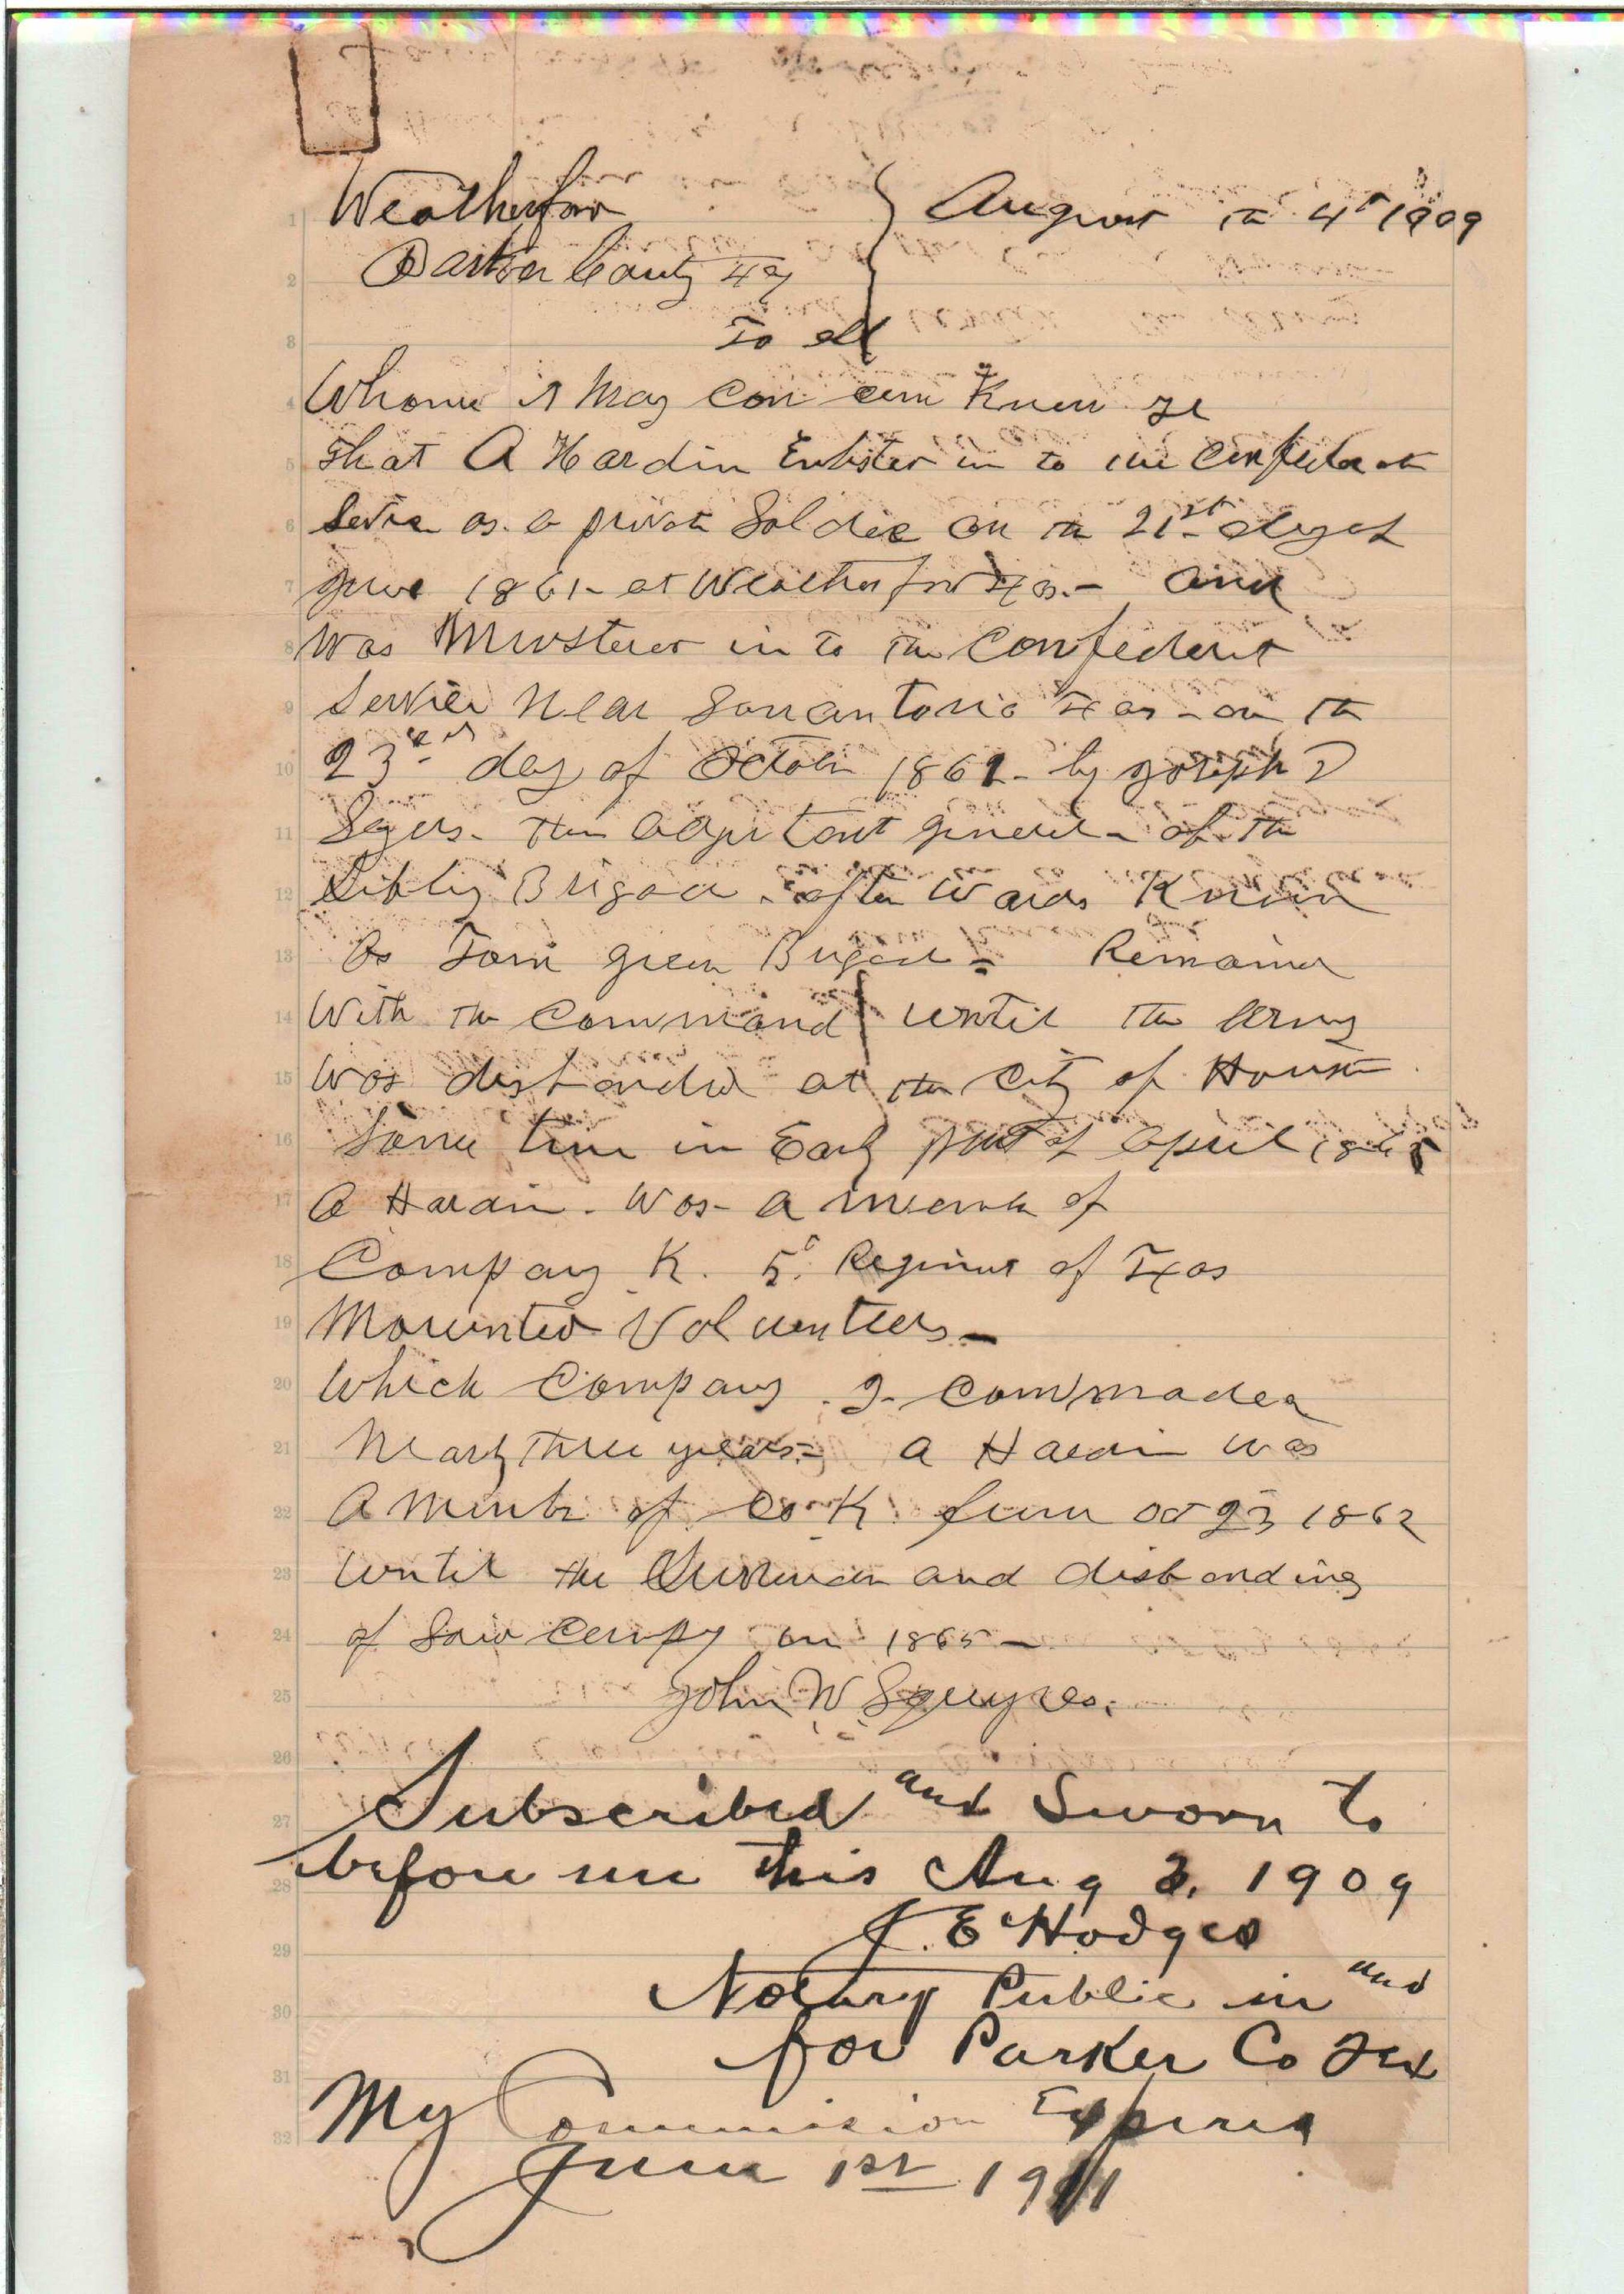 Weatherford } August the 4th 1909
Parker County Txs
To all
Whome it May Con cern Know ye
that A Hardin Enlisted in to the Confederate
Service as a private Soldier on the 21st day of
June 1861 - at Weatherford Txas. - and
Was Mustered in to the Confederate
Service Near Sanantonio Txas - on the
23rd day of October 1861 - by Joseph D
Sayers - then adjutant general - of the
Sibley Brigade - after wards Known
As Tom green Brigade = Remained
With the Command until the army
Was disbanded at the City of Houston
Some time in Early part of April 1865
A Hardin - Was - a member of
Company K. 5th Regiment of Txas
Mounted Volunteers -
Which Company - I - commaded
Nearly three years = A Hardin was
A Member of Co K from Oct 23 1862
until the Surrender and disbanding
of Said Compy in 1865 -
John W Squyres.
Subscribed and Sworn to
before me this Aug 3, 1909
J. E Hodges
Notary Public in and
for Parker Co Tex
My Commision Expires
June 1st 1911